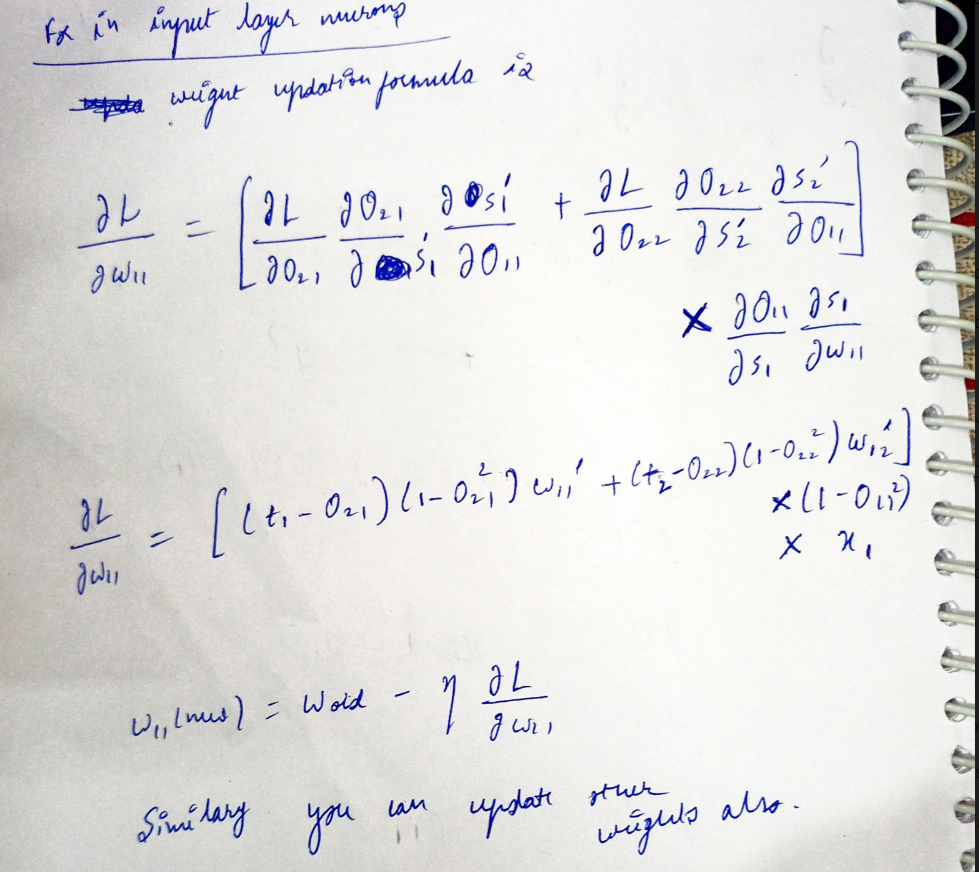 Fx in input layer neurons
weight updation formula is
∂L/∂w₁₁ = [∂L/∂O₂₁ ∂O₂₁/∂s₁' ∂s₁'/∂O₁₁ + ∂L/∂O₂₂ ∂O₂₂/∂s₂' ∂s₂'/∂O₁₁]
× ∂O₁₁/∂s₁ ∂s₁/∂w₁₁
∂L/∂w₁₁ = [(t₁ - O₂₁)(1 - O₂₁²) w₁₁' + (t₂ - O₂₂)(1 - O₂₂²) w₁₂']
× (1 - O₁₁²)
× x₁
w₁₁(new) = Wold - η ∂L/∂w₁₁
Similary you can update other
weights also.